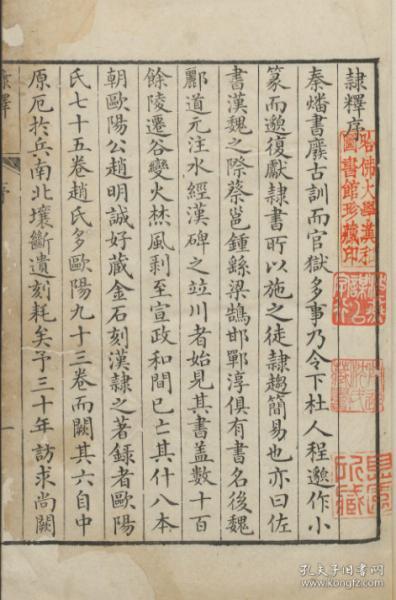 隸釋序
秦燔書廢古訓而官獄多事乃令下杜人程邈作小
篆而邈復獻隸書所以施之徒隸趨簡易也亦曰佐
書漢魏之際蔡邕鍾繇梁鵠邯鄲淳俱有書名後魏
酈道元注水經漢碑之竝川者始見其書盖数十百
餘陵遷谷變火焚風剥至宣政和間已亡其什八本
朝歐陽公趙明誠好蔵金石刻漢隸之著録者歐陽
氏七十五卷趙氏多歐陽九十三卷而闕其六自中
原厄於兵南北壤斷遺刻耗矣予三十年訪求尚闕
隸釋
序
一
哈佛大學漢和
圖書館珍藏印
孔夫子旧书网
www.kongfz.com